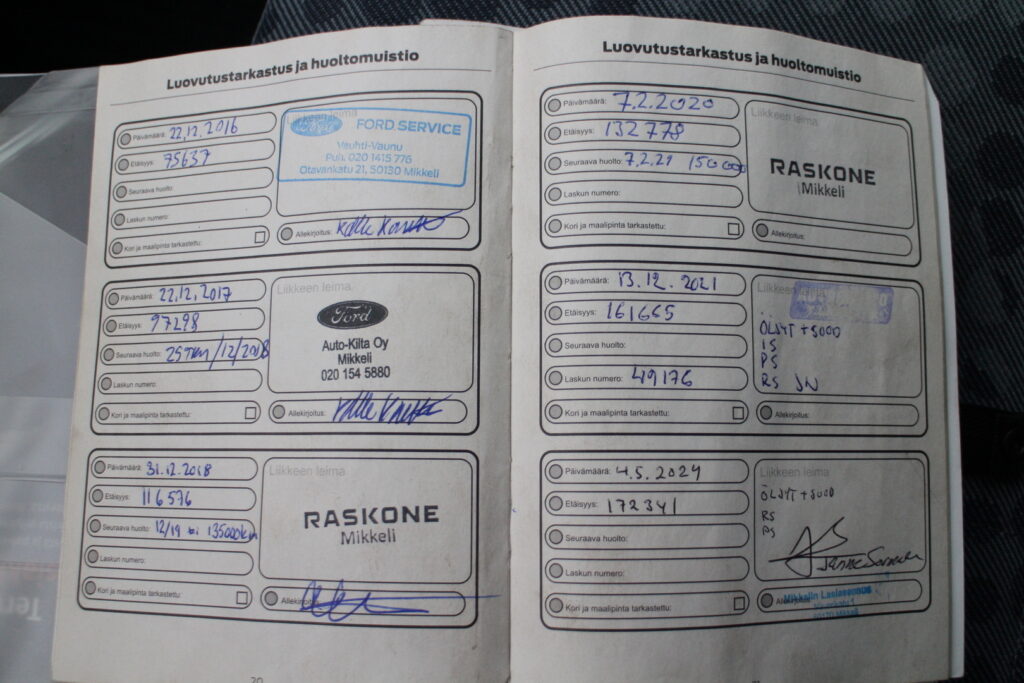 Luovutustarkastus ja huoltomuistio
Päivämäärä: 22.12.2016
Etäisyys: 75637
Seuraava huolto:
Laskun numero:
Kori ja maalipinta tarkastettu:
Liikkeen leima
Ford FORD SERVICE
Vauhti-Vaunu
Puh. 020 1415 776
Otavankatu 21, 50130 Mikkeli
Allekirjoitus:
Päivämäärä: 22.12.2017
Etäisyys: 97298
Seuraava huolto: 25 /12/2018
Laskun numero:
Kori ja maalipinta tarkastettu:
Liikkeen leima
Ford
Auto-Kilta Oy
Mikkeli
020 154 5880
Allekirjoitus:
Päivämäärä: 31.12.2018
Etäisyys: 116576
Seuraava huolto: 12/19 tai 135000km
Laskun numero:
Kori ja maalipinta tarkastettu:
Liikkeen leima
RASKONE
Mikkeli
Allekirjoitus:
Luovutustarkastus ja huoltomuistio
Päivämäärä: 7.2.2020
Etäisyys: 132778
Seuraava huolto: 7.2.21 150000
Laskun numero:
Kori ja maalipinta tarkastettu:
Liikkeen leima
RASKONE
Mikkeli
Allekirjoitus:
Päivämäärä: 13.12.2021
Etäisyys: 161665
Seuraava huolto:
Laskun numero: 49176
Kori ja maalipinta tarkastettu:
Liikkeen
ÖLJYT + SUOD
IS
PS
RS JN
Allekirjoitus:
Päivämäärä: 4.5.2024
Etäisyys: 172341
Seuraava huolto:
Laskun numero:
Kori ja maalipinta tarkastettu:
Liikkeen leima
ÖLJYT + SUOD
RS
PS
Janne
Mikkelin